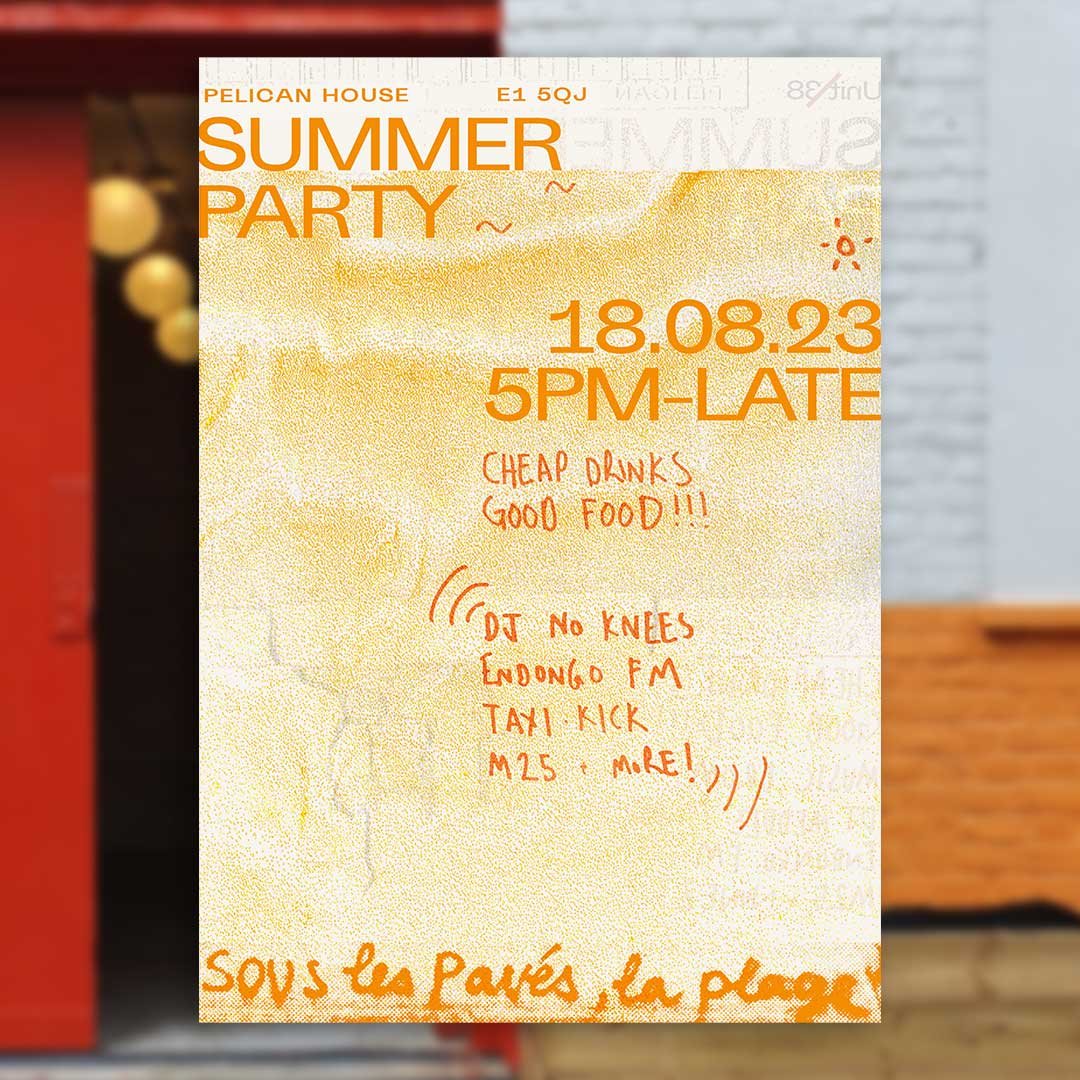 PELICAN HOUSE E1 5QJ
Unit 38
SUMMER
PARTY ~ ~
18.08.23
5PM-LATE
CHEAP DRINKS
GOOD FOOD!!!
DJ NO KNEES
ENDONGO FM
TAXI KICK
M25 + MORE!
Sous les pavés, la plage